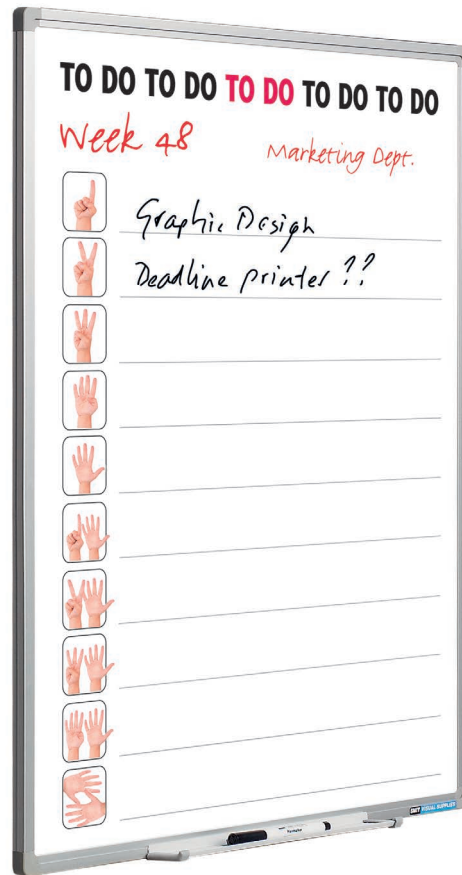 TO DO TO DO TO DO TO DO TO DO
Week 48
Marketing Dept.
Graphic Design
Deadline printer ??
SMIT VISUAL SUPPLIES